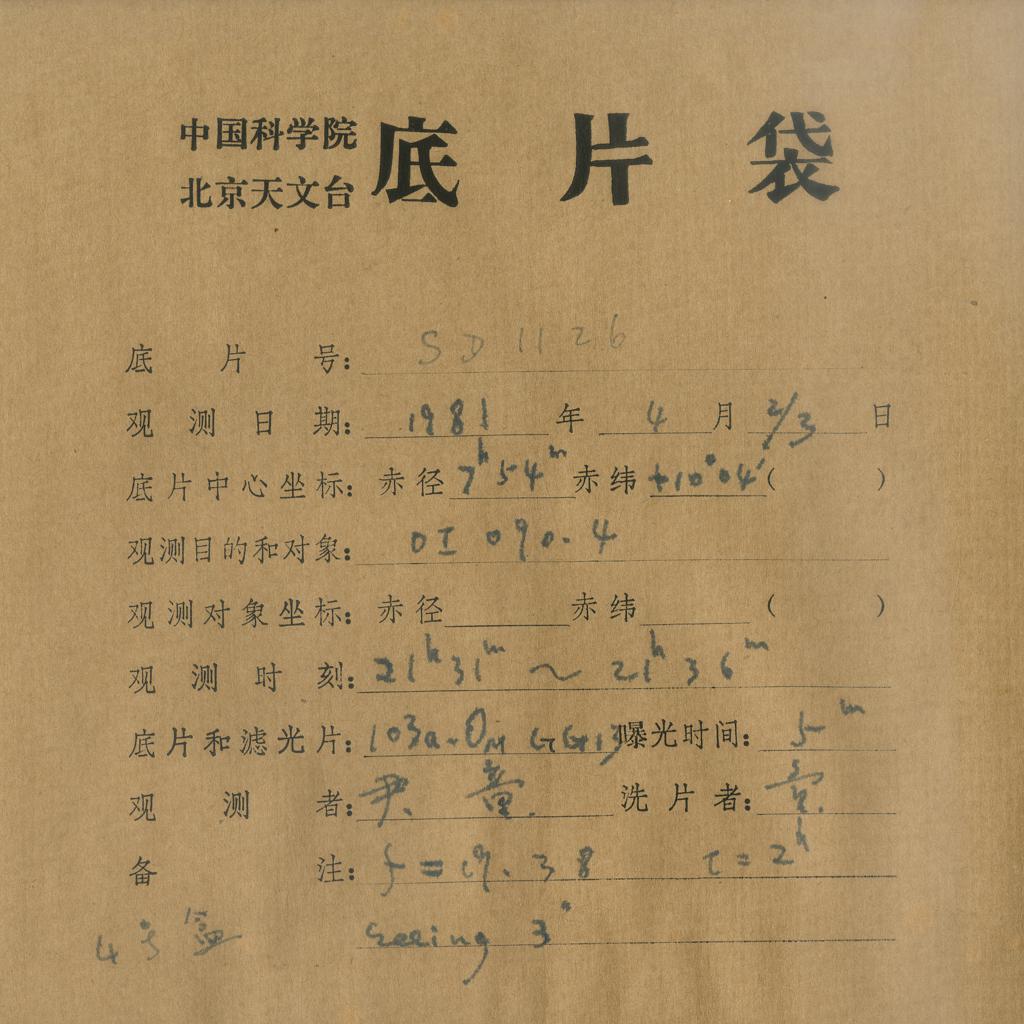 中国科学院
北京天文台
底片袋
底片号：SD 1126
观测日期：1981年4月2/3日
底片中心坐标：赤径7h54m赤纬+10°04′(  )
观测目的和对象：OI 090.4
观测对象坐标：赤径 赤纬 (  )
观测时刻：21h31m～21h36m
底片和滤光片：103a-O GG13曝光时间：5m
观测者：尹 童. 洗片者：
备注：f=19.38 t=2h
4号盒 seeing 3"